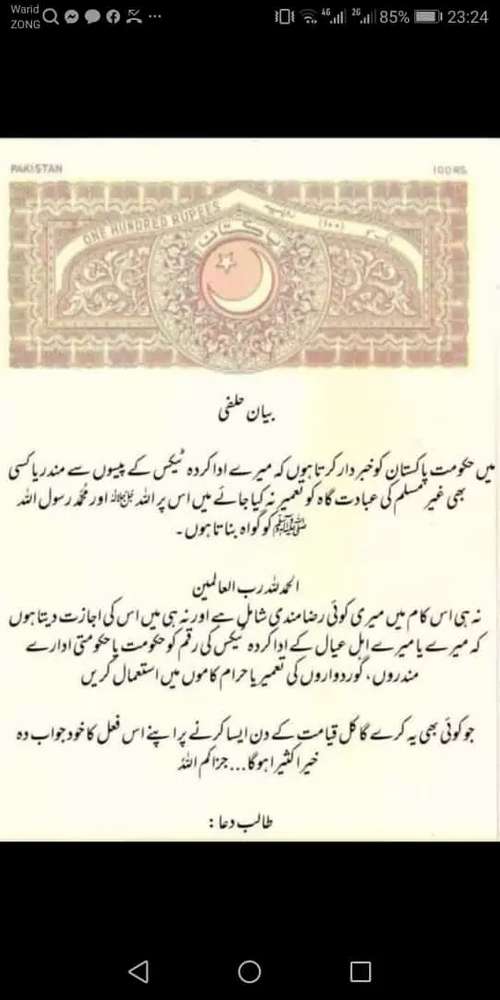 Warid
ZONG
4G
2G
85%
23:24
PAKISTAN
100 RS.
ONE HUNDRED RUPEES
پاکستان
بیان حلفی
میں حکومت پاکستان کو خبردار کرتا ہوں کہ میرے ادا کردہ ٹیکس کے پیسوں سے مندر یا کسی
بھی غیر مسلم کی عبادت گاہ کو تعمیر نہ کیا جائے میں اس پر اللہ ﷻ اور محمد رسول اللہ
ﷺ کو گواہ بناتا ہوں۔
الحمد للہ رب العالمین
نہ ہی اس کام میں میری کوئی رضامندی شامل ہے اور نہ ہی میں اس کی اجازت دیتا ہوں
کہ میرے یا میرے اہل عیال کے ادا کردہ ٹیکس کی رقم کو حکومت یا حکومتی ادارے
مندروں، گوردواروں کی تعمیر یا حرام کاموں میں استعمال کریں
جو کوئی بھی یہ کرے گا کل قیامت کے دن ایسا کرنے پر اپنے اس فعل کا خود جواب دہ
خیرا کثیرا ہوگا... جزاکم اللہ
طالب دعا :